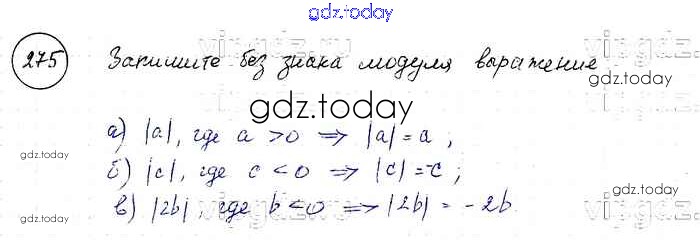 gdz.today
275 Запишите без знака модуля выражение
gdz.today
а) |a|, где a > 0 ⇒ |a| = a ;
gdz.today
б) |c|, где c < 0 ⇒ |c| = -c ;
gdz.today
в) |2b|, где b < 0 ⇒ |2b| = -2b
gdz.today